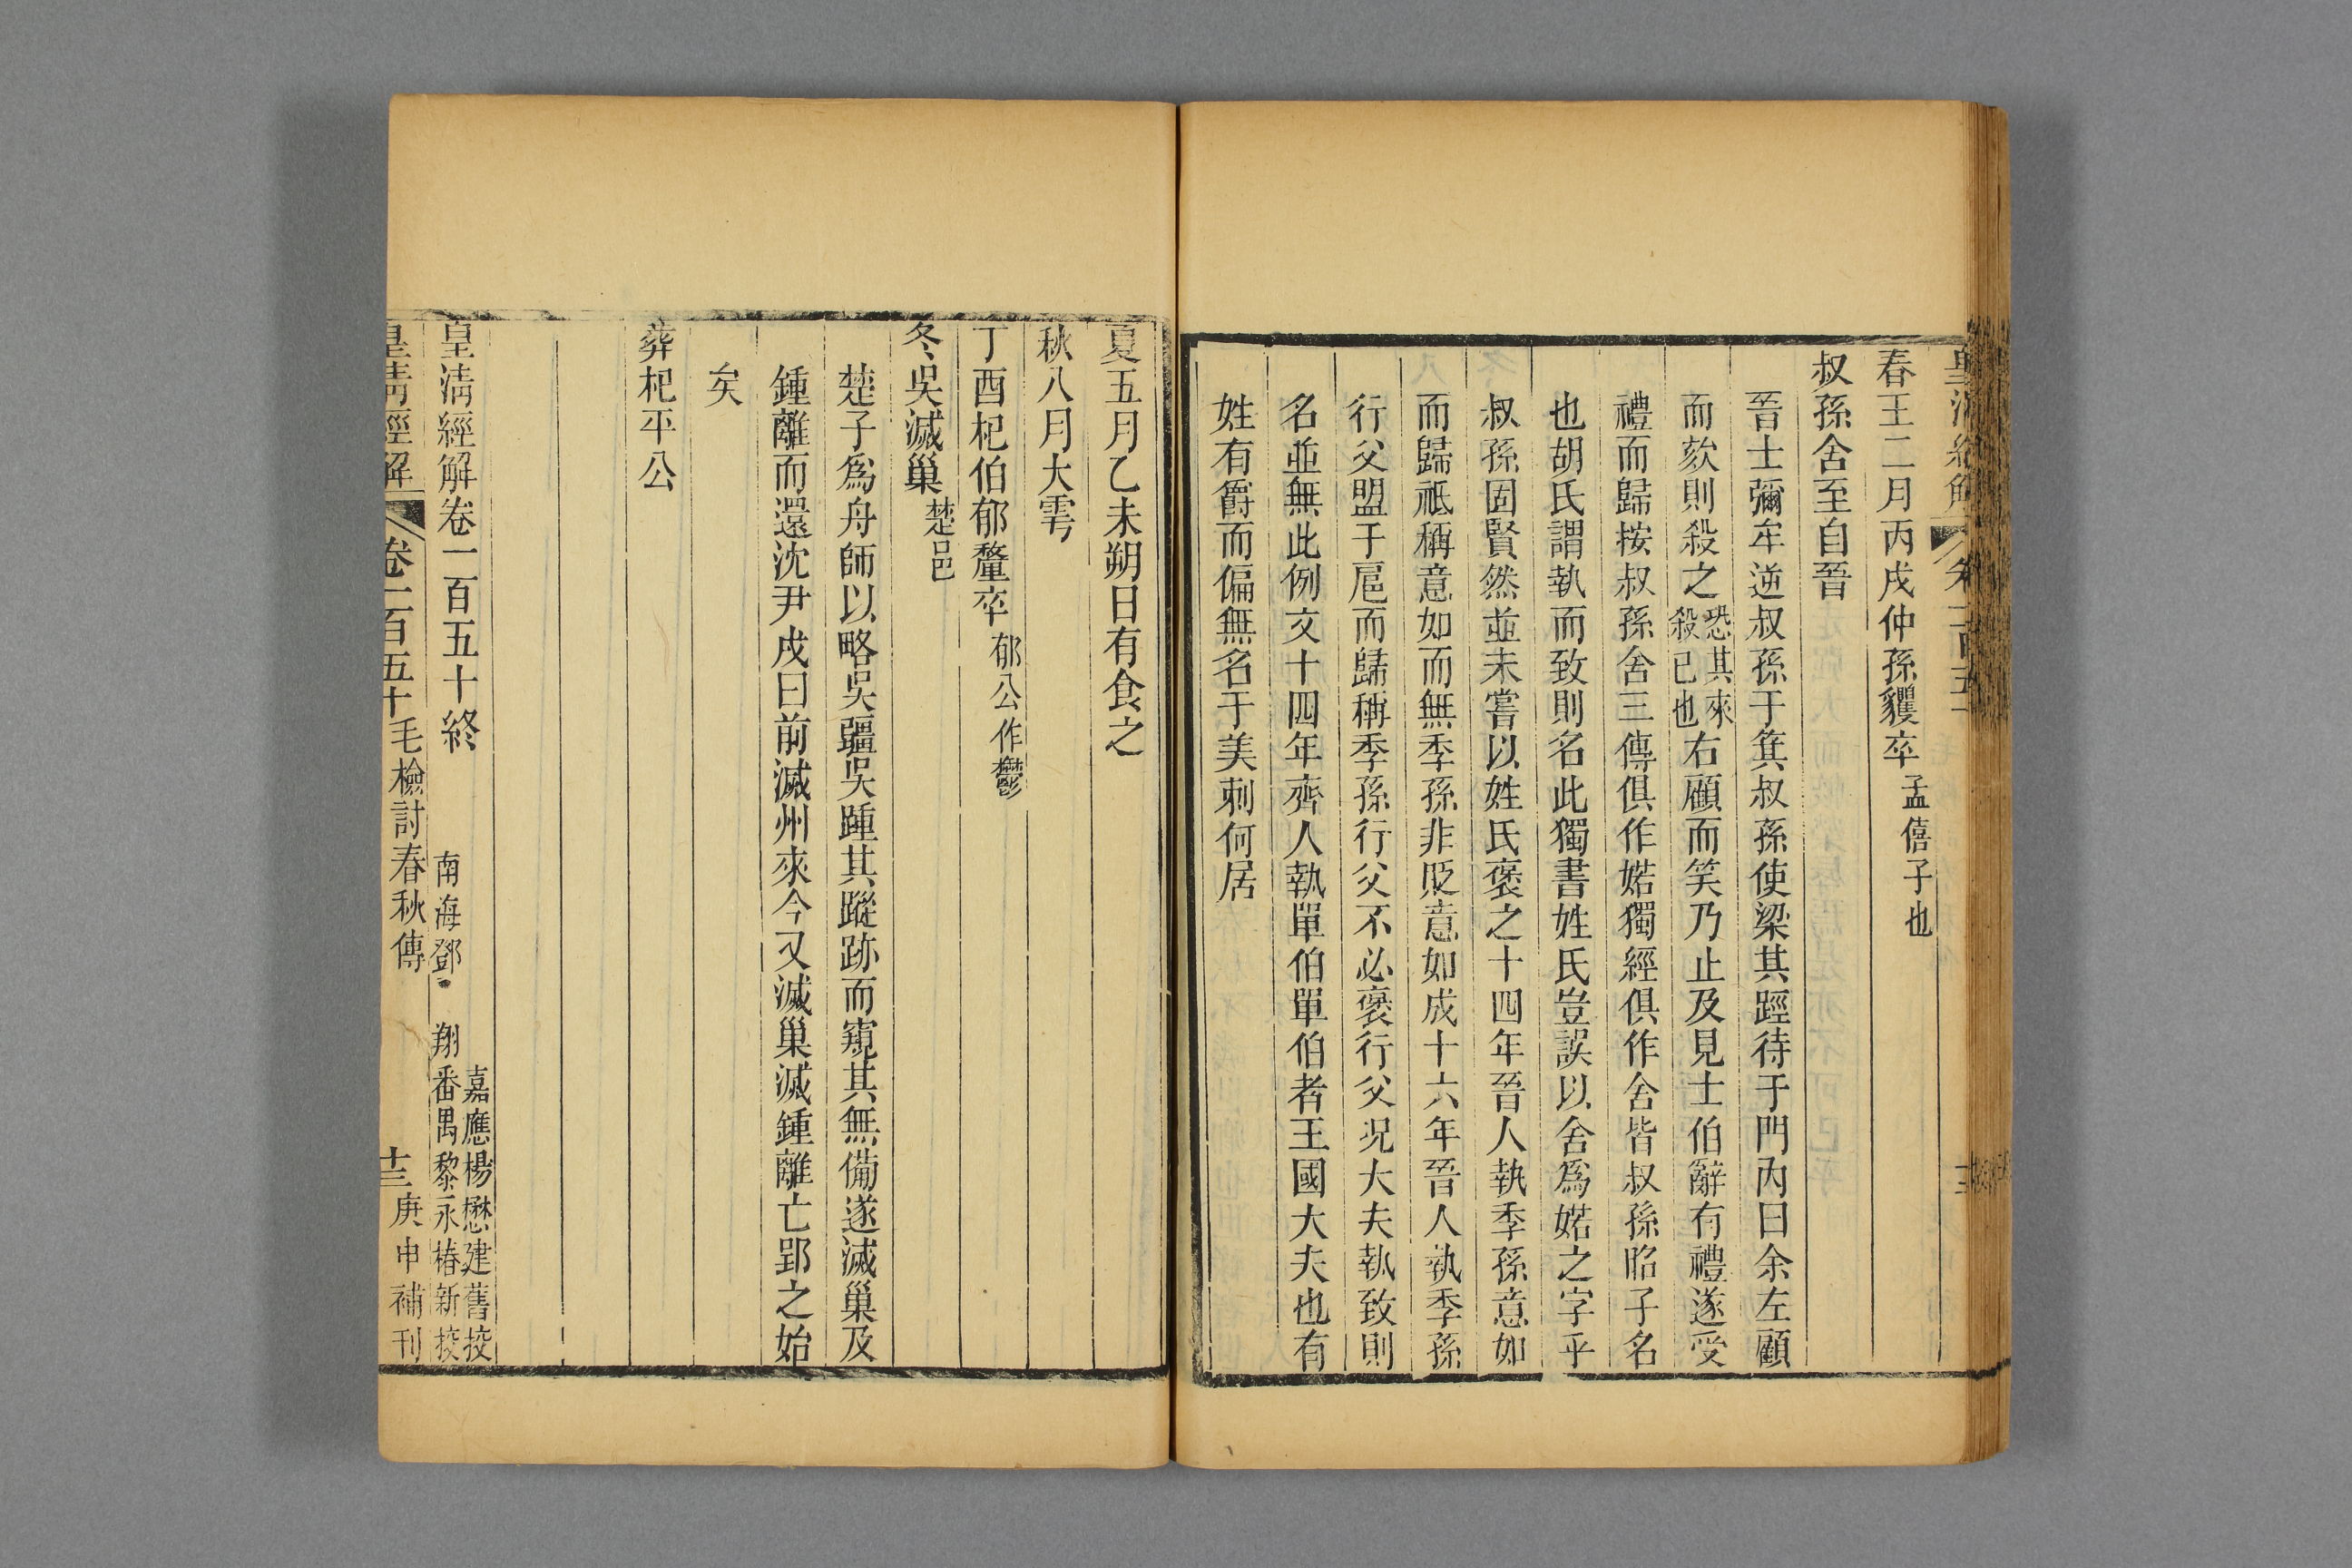 春王二月丙戌仲孫貜卒孟僖子也
叔孫舍至自晉
晉士彌牟逆叔孫于箕叔孫使梁其踁待于門內曰余左顧
而欬則殺之恐其來殺己也右顧而笑乃止及見士伯辭有禮遂受
禮而歸按叔孫舍三傳俱作婼獨經俱作舍皆叔孫昭子名
也胡氏謂執而致則名此獨書姓氏豈誤以舍爲婼之字乎
叔孫固賢然並未嘗以姓氏褒之十四年晉人執季孫意如
而歸祗稱意如而無季孫非貶意如成十六年晉人執季孫
行父盟于扈而歸稱季孫行父不必褒行父況大夫執致則
名並無此例文十四年齊人執單伯單伯者王國大夫也有
姓有爵而偏無名于美刺何居
夏五月乙未朔日有食之
秋八月大雩
丁酉杞伯郁釐卒郁公作鬱
冬吳滅巢楚邑
楚子爲舟師以略吳疆吳踵其蹤跡而窺其無備遂滅巢及
鍾離而還沈尹戌曰前滅州來今又滅巢滅鍾離亡郢之始
矣
葬杞平公
皇清經解卷一百五十終
嘉應楊懋建舊挍
南海鄧翔
番禺黎永椿新挍
皇清經解 卷一百五十 毛檢討春秋傳 十三 庚申補刊